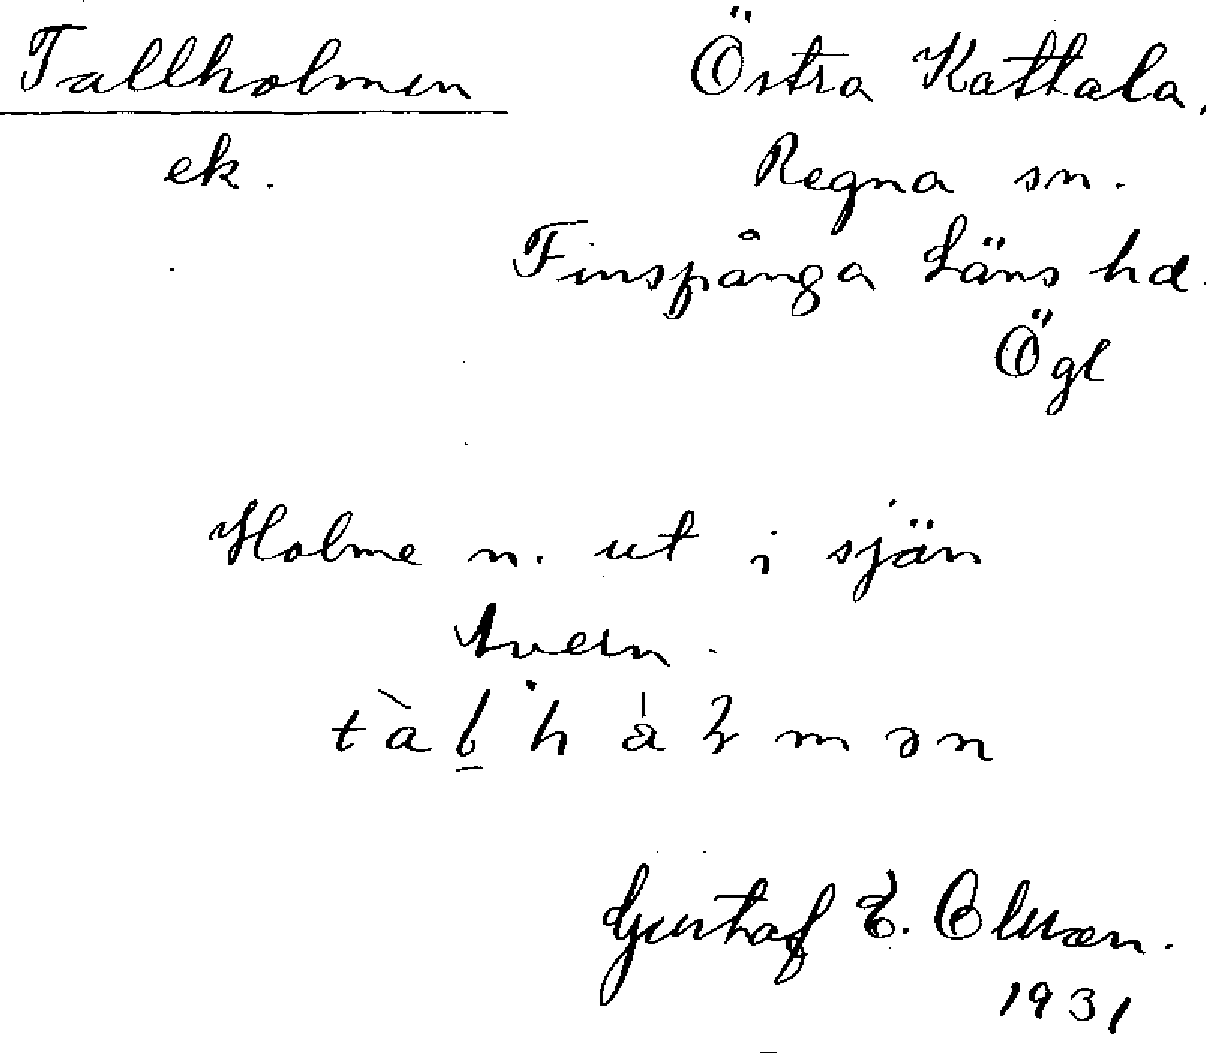 Tallholmen
ek.
Östra Kattala.
Regna sn.
Finspånga Läns hd.
Ögl
Holme n. ut i sjän
Avern.
Gustaf E. Olsson.
1931